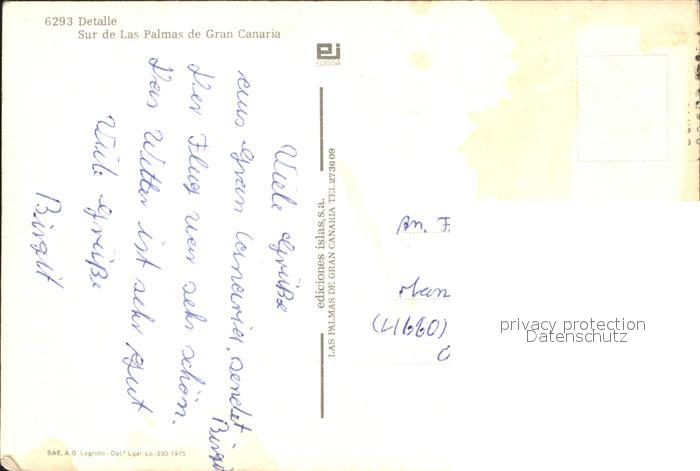 6293 Detalle
Sur de Las Palmas de Gran Canaria
ej
EDISSA
Viele Grüße
aus Gran Canaria, sendet Birgit
Der Flug war sehr schön.
Das Wetter ist sehr gut
Viele Grüße
Birgit
ediciones islas,s.a.
LAS PALMAS DE GRAN CANARIA TEL.273609
An. F.
(4660)
privacy protection
Datenschutz
SAE, A.G. Logroño - Dpt.º Lgal. Lo.-330-1975